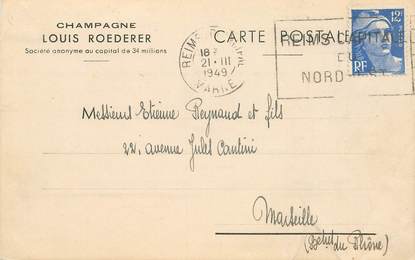 CHAMPAGNE
LOUIS ROEDERER
Société anonyme au capital de 34 millions
CARTE POSTALE
REIMS
18
21 - III
1949
MARNE
REIMS CAPITALE
DU
NORD-EST
12
RF
Messieurs Etienne Reynaud et fils
221 avenue Jules Cantini
Marseille
(Bches du Rhône)